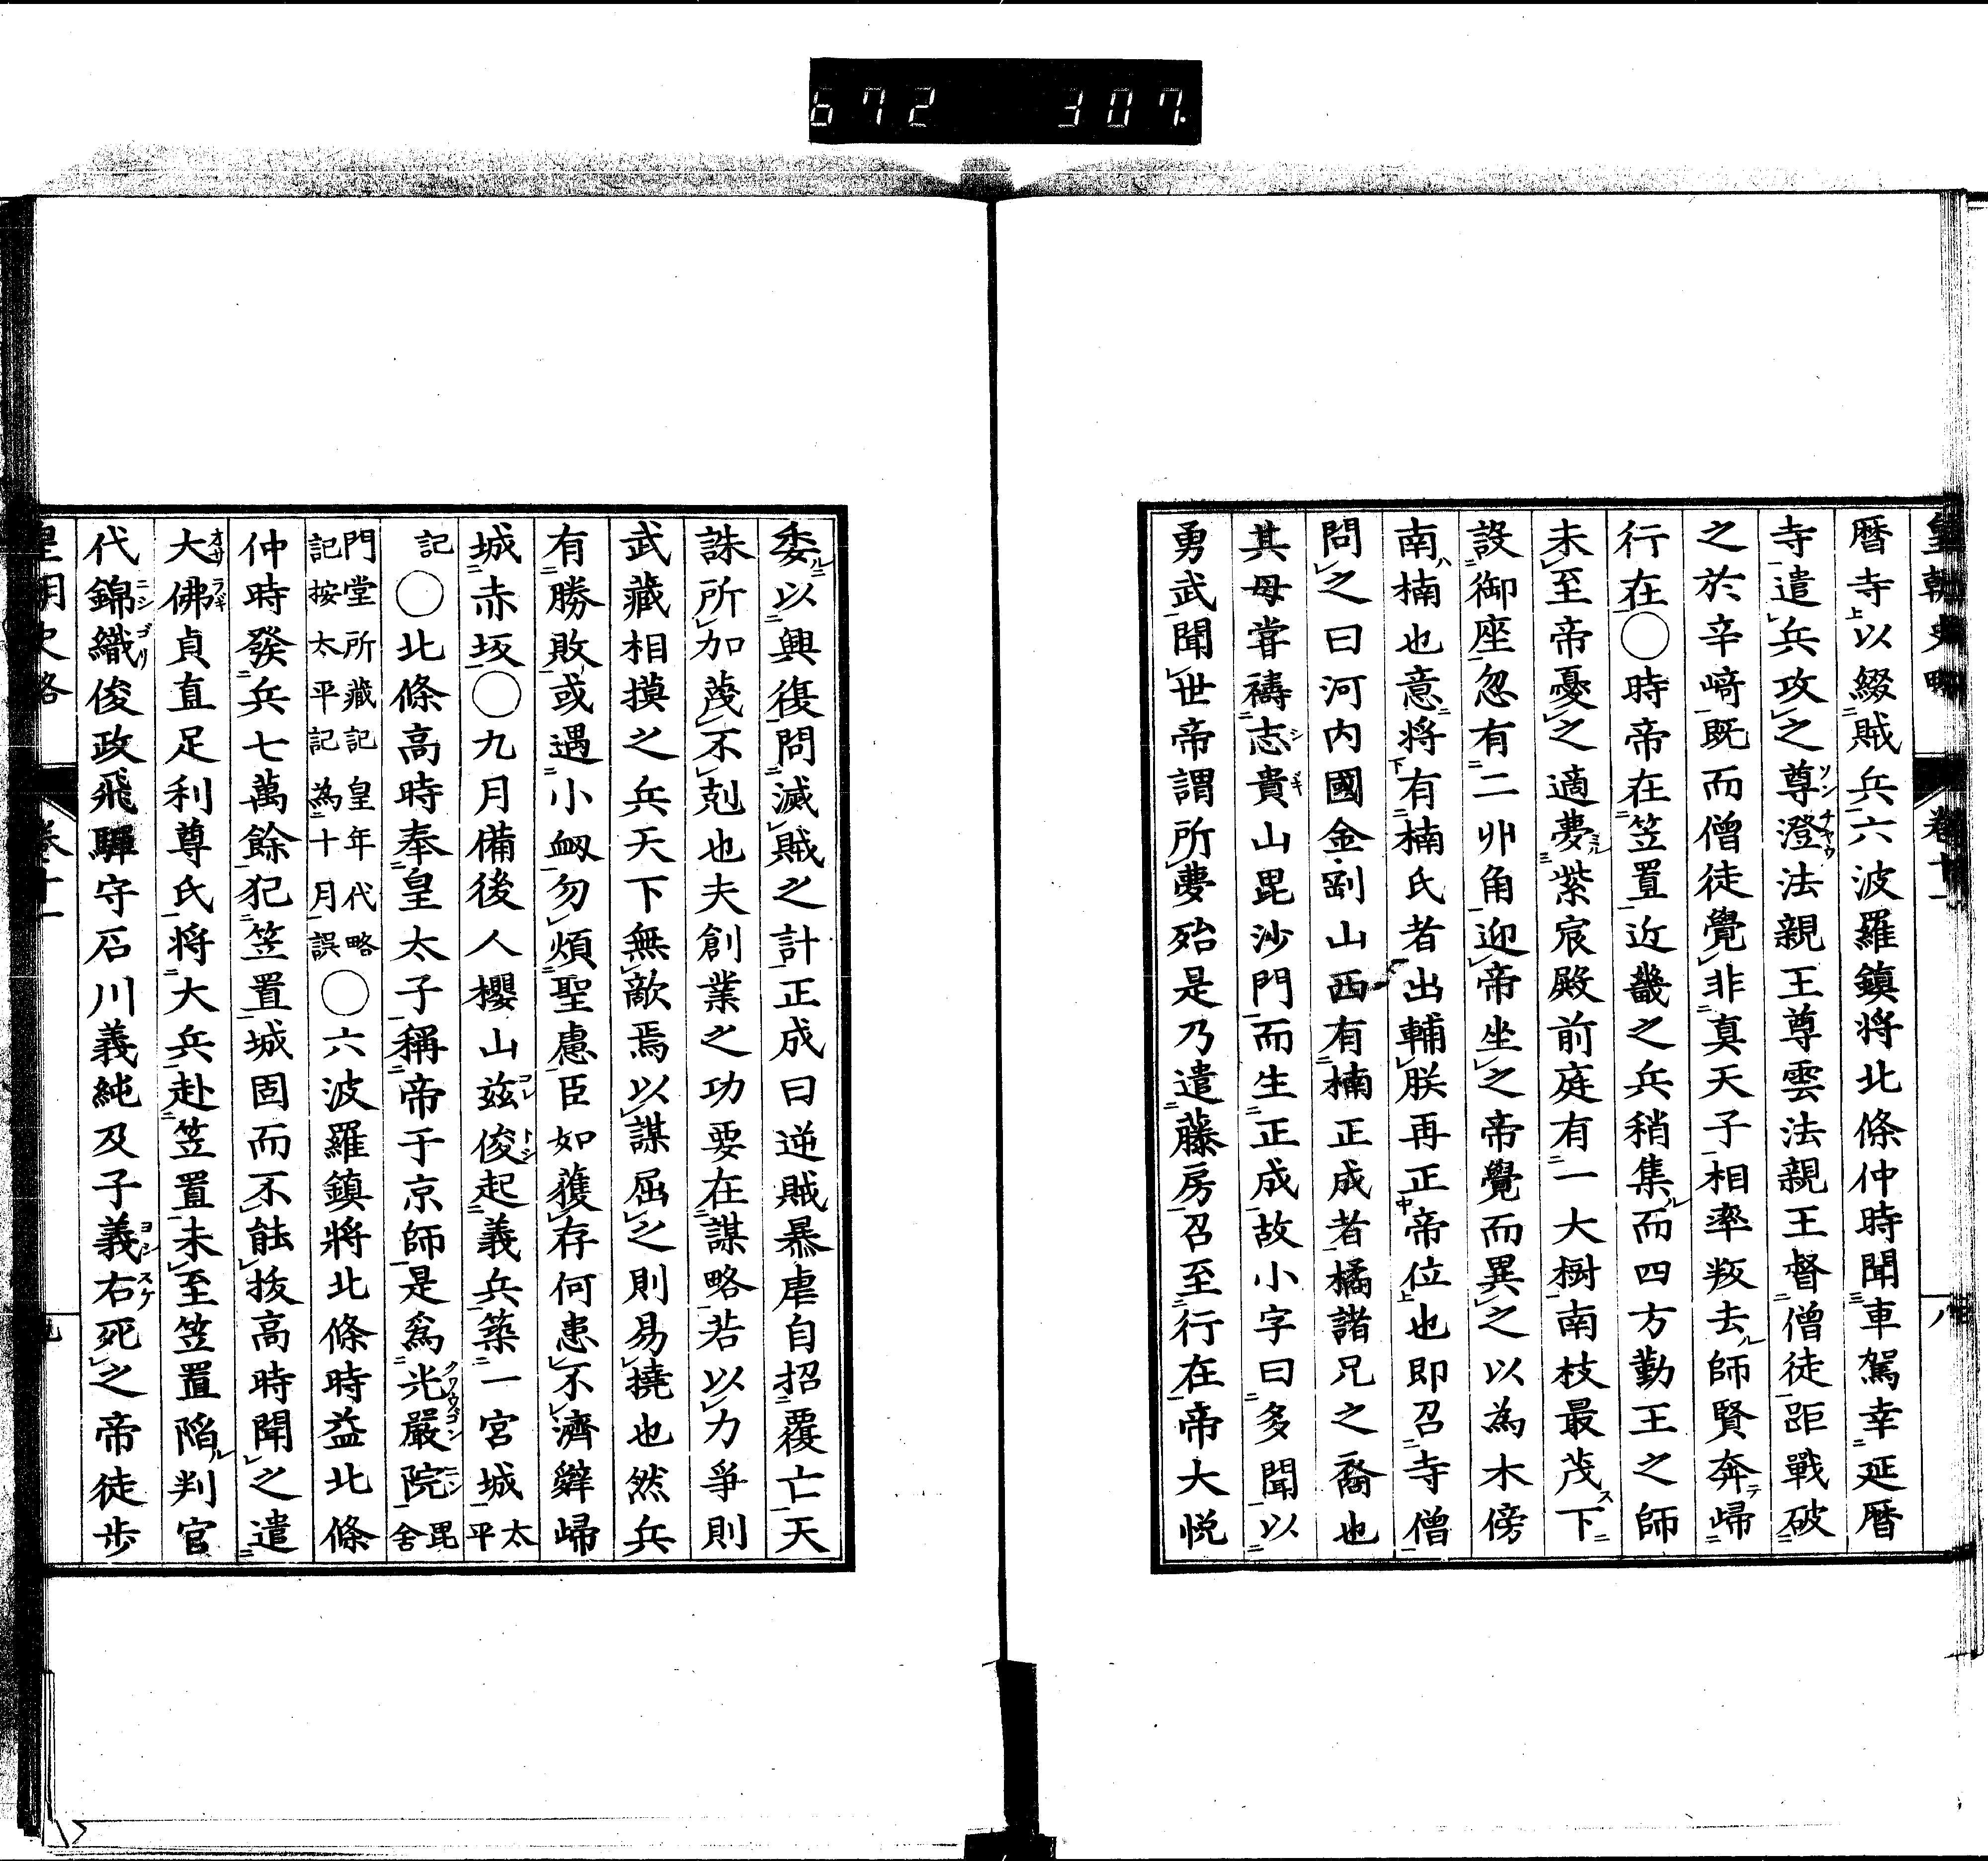 672 307.
皇朝史略 卷十一 八
暦寺以綴賊兵六波羅鎮将北條仲時聞車駕幸延暦
寺遣兵攻之尊澄法親王尊雲法親王督僧徒距戰破
之於辛﨑既而僧徒覺非真天子相率叛去師賢奔歸
行在○時帝在笠置近畿之兵稍集而四方勤王之師
未至帝憂之適夢紫宸殿前庭有一大樹南枝最茂下
設御座忽有二丱角迎帝坐之帝覺而異之以為木傍
南楠也意将有楠氏者出輔朕再正帝位也即召寺僧
問之曰河内國金剛山西有楠正成者橘諸兄之裔也
其母嘗禱志貴山毘沙門而生正成故小字曰多聞以
勇武聞世帝謂所夢殆是乃遣藤房召至行在帝大悦
委以興復問滅賊之計正成曰逆賊暴虐自招覆亡天
誅所加蔑不剋也夫創業之功要在謀略若以力爭則
武藏相摸之兵天下無敵焉以謀屈之則易撓也然兵
有勝敗或遇小衂勿煩聖慮臣如獲存何患不濟辭歸
城赤坂○九月備後人櫻山茲俊起義兵築一宮城太平
記○北條高時奉皇太子稱帝于京師是爲光嚴院毘舍
門堂所藏記皇年代略記按太平記為十月誤○六波羅鎮將北條時益北條
仲時發兵七萬餘犯笠置城固而不能拔高時聞之遣
大佛貞直足利尊氏将大兵赴笠置未至笠置陷判官
代錦織俊政飛驒守石川義純及子義右死之帝徒步
皇朝史略 卷十一 九